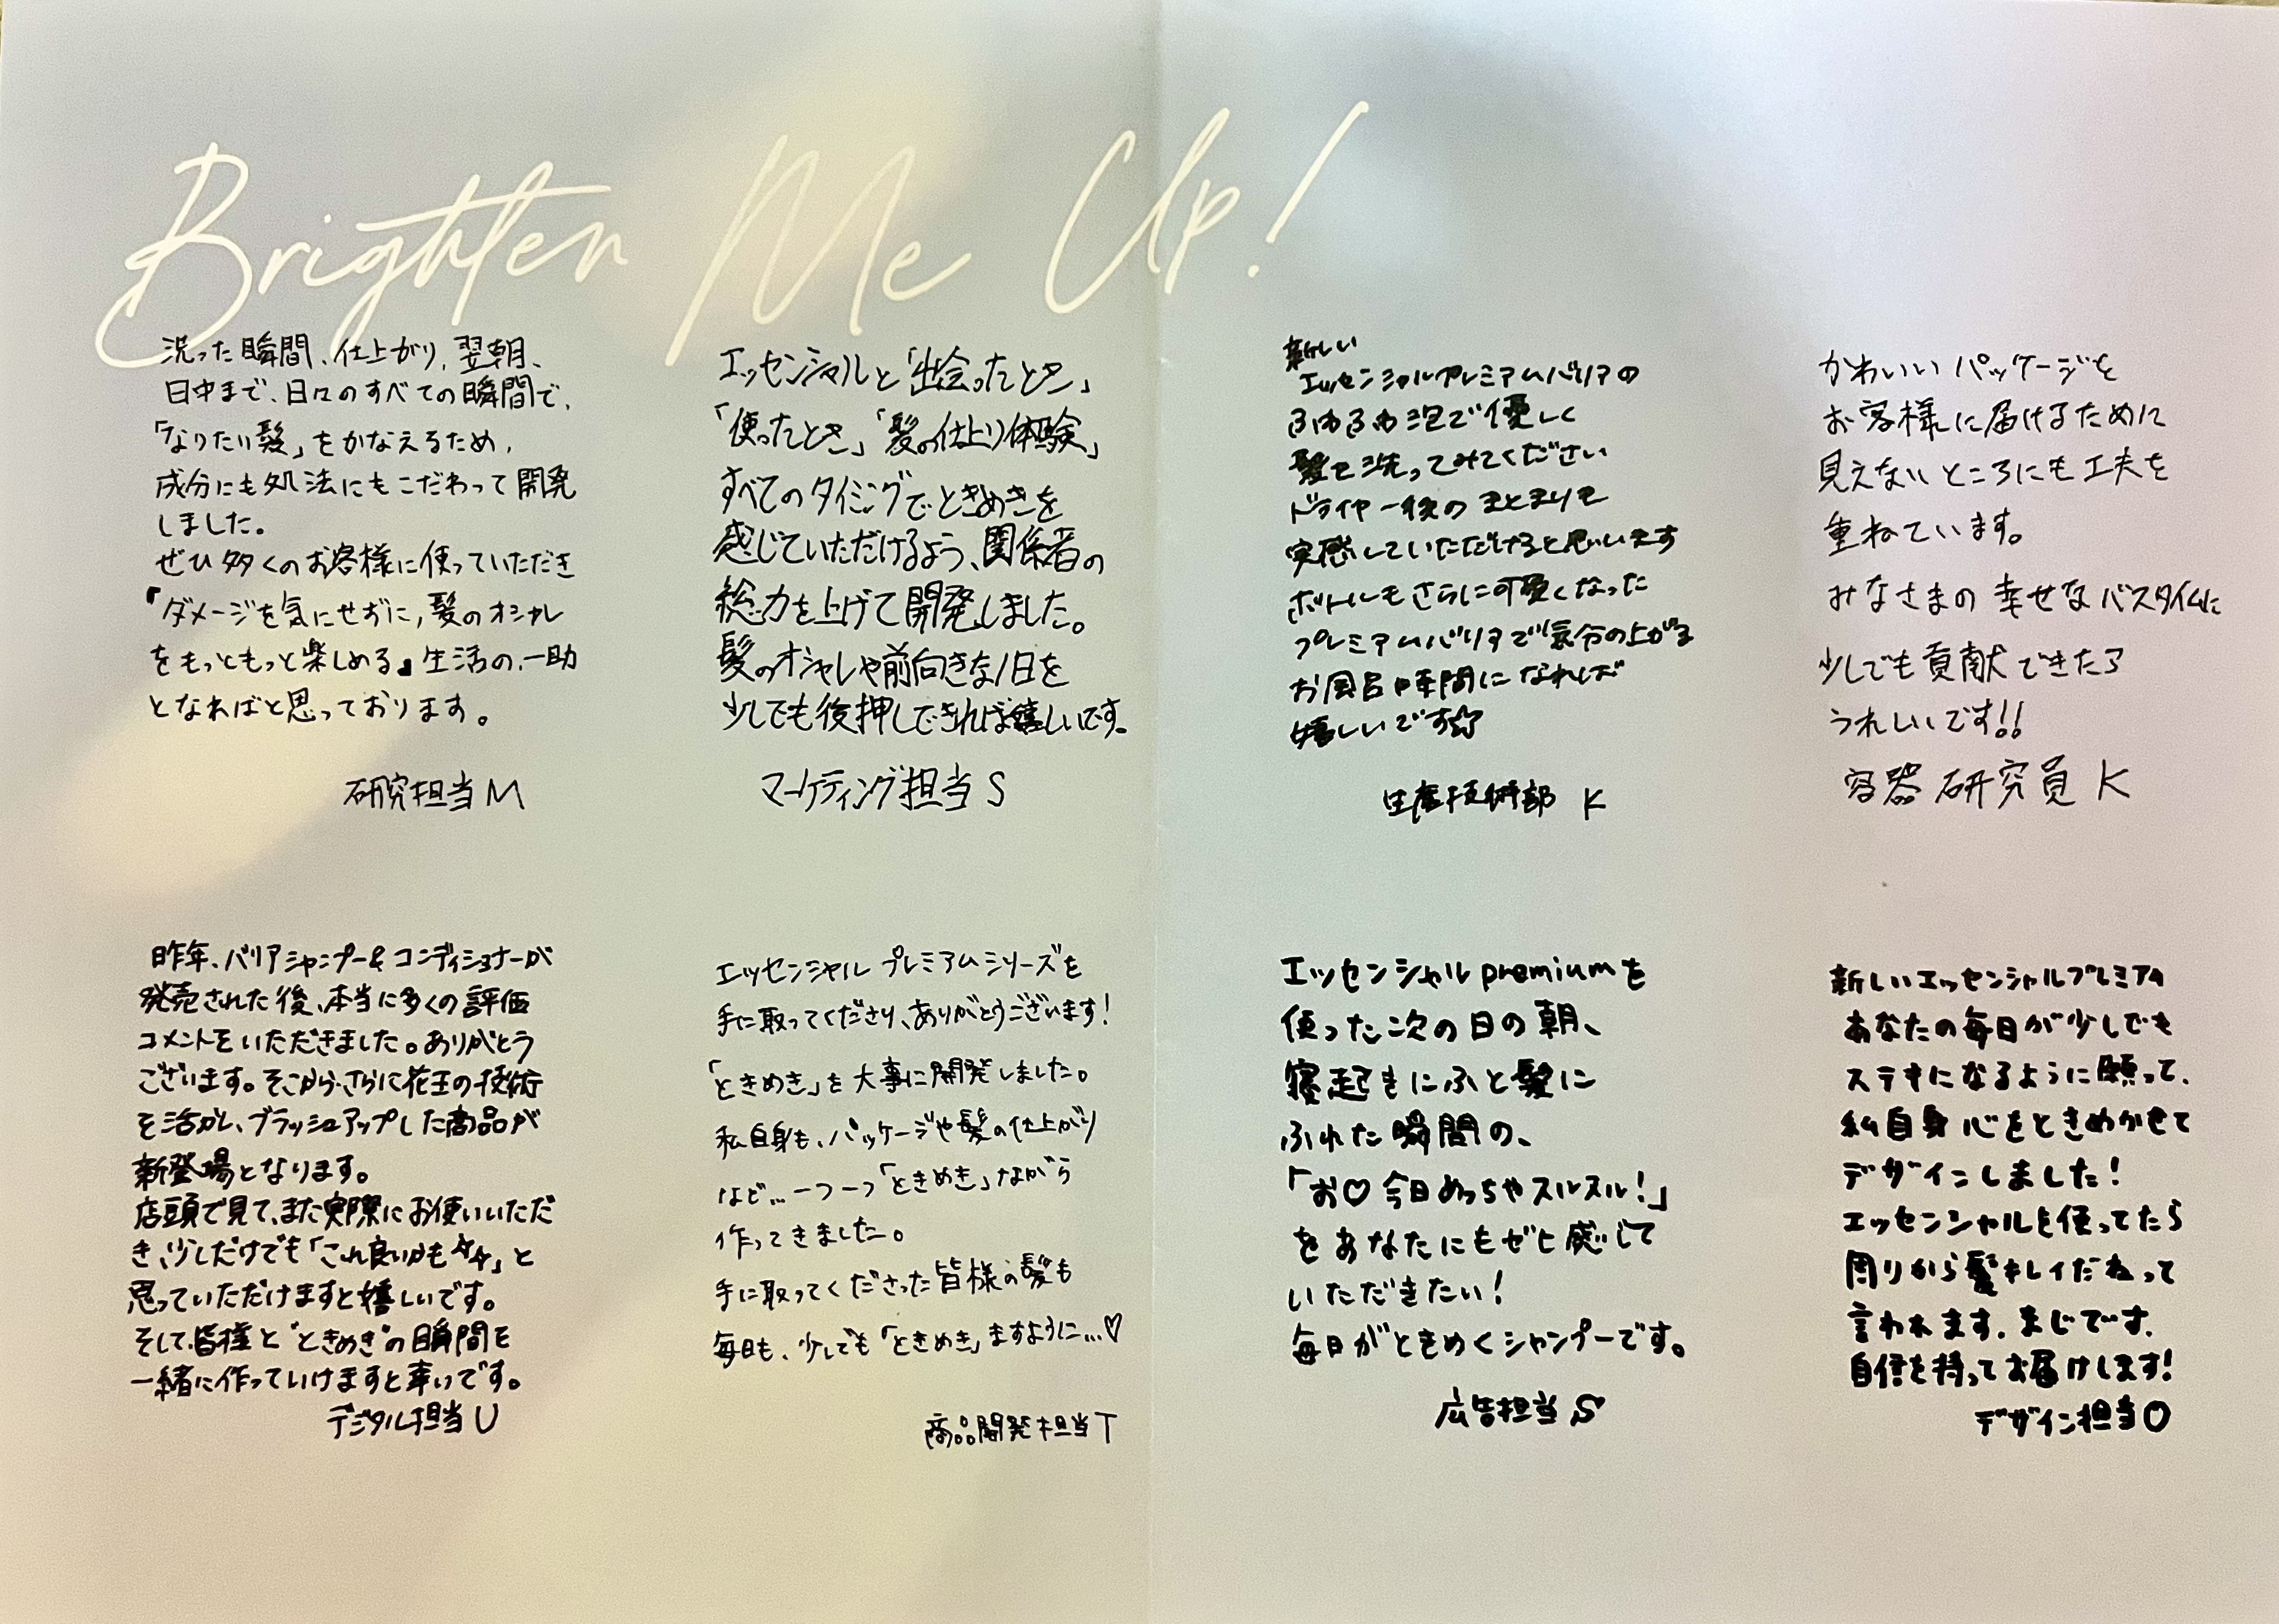 Brighten Me Up!
洗った瞬間、仕上がり、翌朝、
日中まで、日々のすべての瞬間で、
「なりたい髪」をかなえるため、
成分にも処法にもこだわって開発
しました。
ぜひ多くのお客様に使っていただき
『ダメージを気にせずに、髪のオシャレ
をもっともっと楽しめる』生活の、一助
となればと思っております。
研究担当 M
エッセンシャルと「出会ったとき」
「使ったとき」「髪の仕上り体験」
すべてのタイミングでときめきを
感じていただけるよう、関係者の
総力を上げて開発しました。
髪のオシャレや前向きな1日を
少しでも後押しできれば嬉しいです。
マーケティング担当 S
新しい
エッセンシャルプレミアムバリアの
ふわふわ泡で優しく
髪を洗ってみてください
ドライヤー後のまとまりを
実感していただけると思います
ボトルもさらに可愛くなった
プレミアムバリアで気分の上がる
お風呂時間になれば
嬉しいです☆
生産技術部 K
かわいいパッケージを
お客様に届けるために
見えないところにも工夫を
重ねています。
みなさまの幸せなバスタイムに
少しでも貢献できたら
うれしいです!!
容器研究員 K
昨年、バリアシャンプー&コンディショナーが
発売された後、本当に多くの評価
コメントをいただきました。ありがとう
ございます。そこから、さらに花王の技術
を活かし、ブラッシュアップした商品が
新登場となります。
店頭で見て、また実際にお使いいただ
き、少しだけでも「これ良いかも☆☆」と
思っていただけますと嬉しいです。
そして、皆様と"ときめき"の瞬間を
一緒に作っていけますと幸いです。
デジタル担当 U
エッセンシャル プレミアムシリーズを
手に取ってくださり、ありがとうございます!
「ときめき」を大事に開発しました。
私自身も、パッケージや髪の仕上がり
など…一つ一つ「ときめき」ながら
作ってきました。
手に取ってくださった皆様の髪も
毎日も、少しでも「ときめき」ますように…♡
商品開発担当 T
エッセンシャル premiumを
使った次の日の朝、
寝起きにふと髪に
ふれた瞬間の、
「お♡今日めっちゃスルスル!」
をあなたにもぜヒ感じて
いただきたい!
毎日がときめくシャンプーです。
広告担当 S
新しいエッセンシャルプレミアム
あなたの毎日が少しでも
ステキになるように願って、
私自身 心をときめかせて
デザインしました!
エッセンシャルを使ってたら
周りから髪キレイだねって
言われます。まじです。
自信を持ってお届けします!
デザイン担当 O